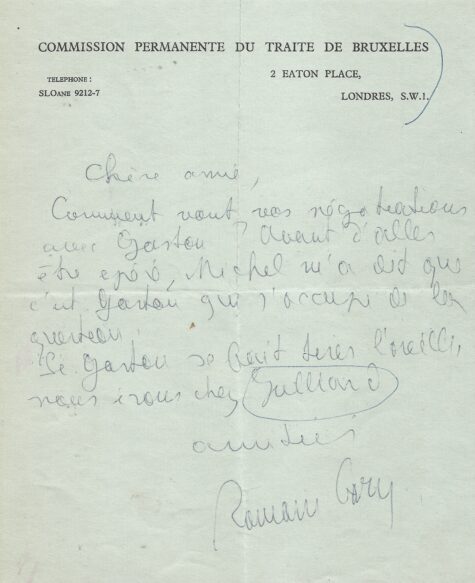 COMMISSION PERMANENTE DU TRAITE DE BRUXELLES
TELEPHONE :
SLOANE 9212-7
2 EATON PLACE,
LONDRES, S.W.1.
Chère amie,
Comment vont vos négotiations
avec Gaston ? Avant d'
être Michel m'a dit que
c'est Gaston qui s'occupe de la
question.
Si Gaston se fait tirer l'oreille,
nous irons chez Julliard
amitiés
Romain Gary.